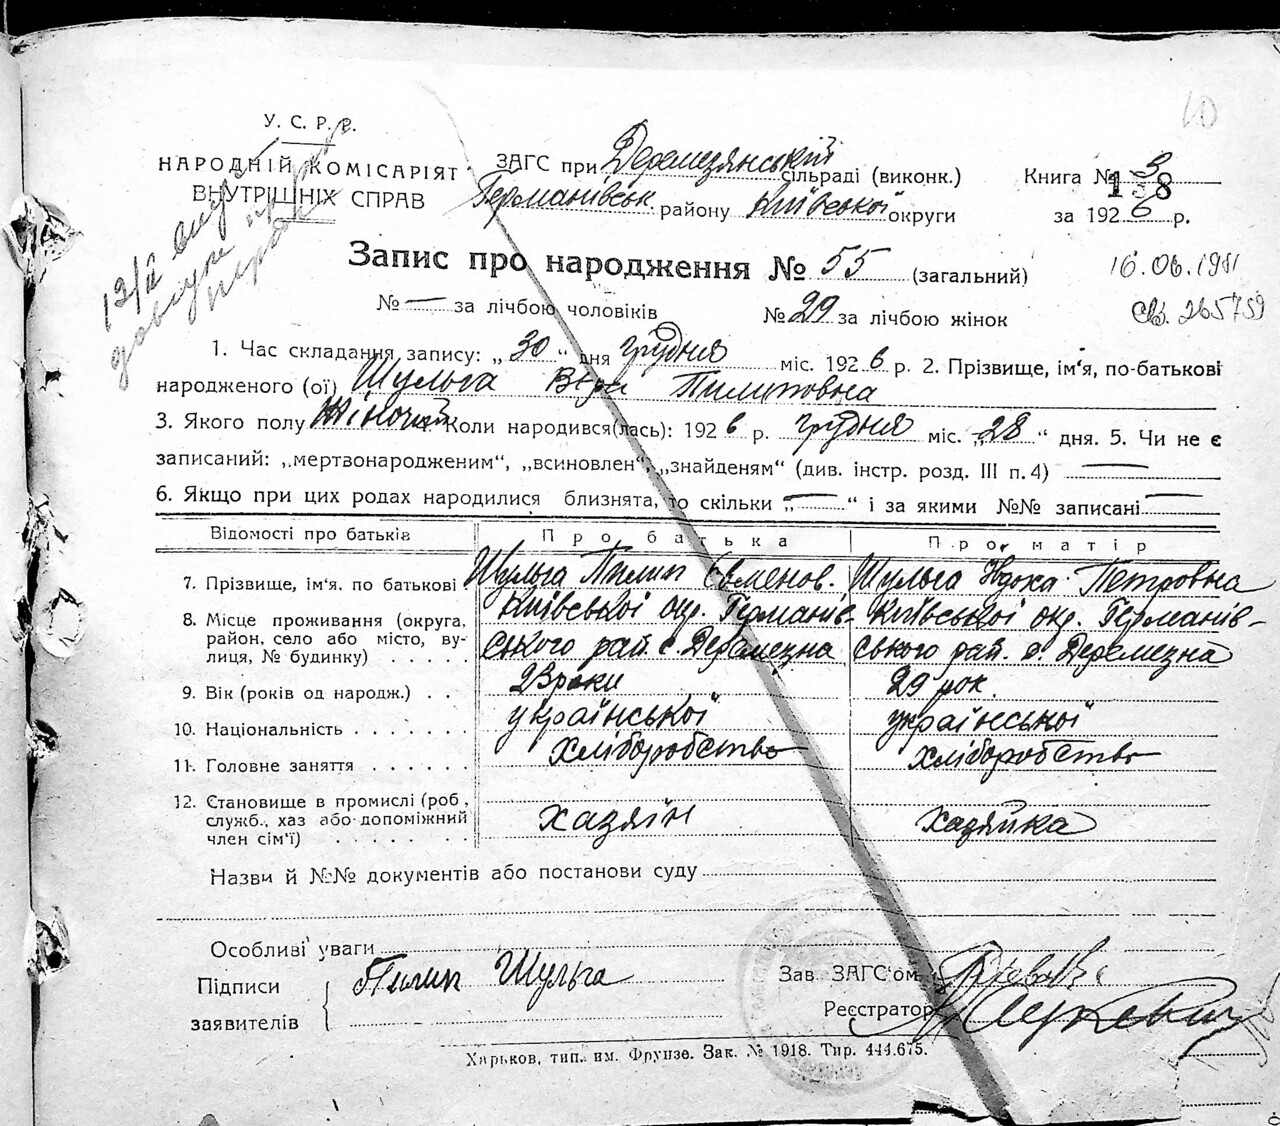 У. С. Р. Р.
НАРОДНІЙ КОМІСАРІЯТ
ВНУТРІШНІХ СПРАВ
ЗАГС при Деремезянській сільраді (виконк.)
Германівськ. району Київської округи
Книга № 3
138
за 1926 р.
Запис про народження № 55 (загальний)
16.06.1981
св. 265759
№ — за лічбою чоловіків № 29 за лічбою жінок
1. Час складання запису: „30“ дня грудня міс. 1926 р. 2. Прізвище, ім'я, по-батькові
народженого (ої) Шульга Віра Пилиповна
3. Якого полу Жіночой. Коли народився(лась): 1926 р. грудня міс. „28“ дня. 5. Чи не є
записаний: „мертвонародженим“, „всиновлен“, „знайденям“ (див. інстр. розд. III п. 4) —
6. Якщо при цих родах народилися близнята, то скільки „—“ і за якими №№ записані —
Відомості про батьків Про батька Про матір
7. Прізвище, ім'я. по батькові Шульга Пилип Євменов. Шульга Ядоха Петровна
8. Місце проживання (округа, район, село або місто, вулиця, № будинку) Київської окр. Германівського рай. с. Деремезна Київської окр. Германівського рай. с. Деремезна
9. Вік (років од народж.) 23 роки 29 рок.
10. Національність української української
11. Головне заняття хліборобство хліборобство
12. Становище в промислі (роб, служб., хаз або допоміжний член сім'ї) хазяїн хазяйка
Назви й №№ документів або постанови суду
Особливі уваги
Підписи заявителів Пилип Шульга
Зав. ЗАГС'ом
Реєстратор
Харьков, тип. им. Фрунзе. Зак. № 1918. Тир. 444.675.